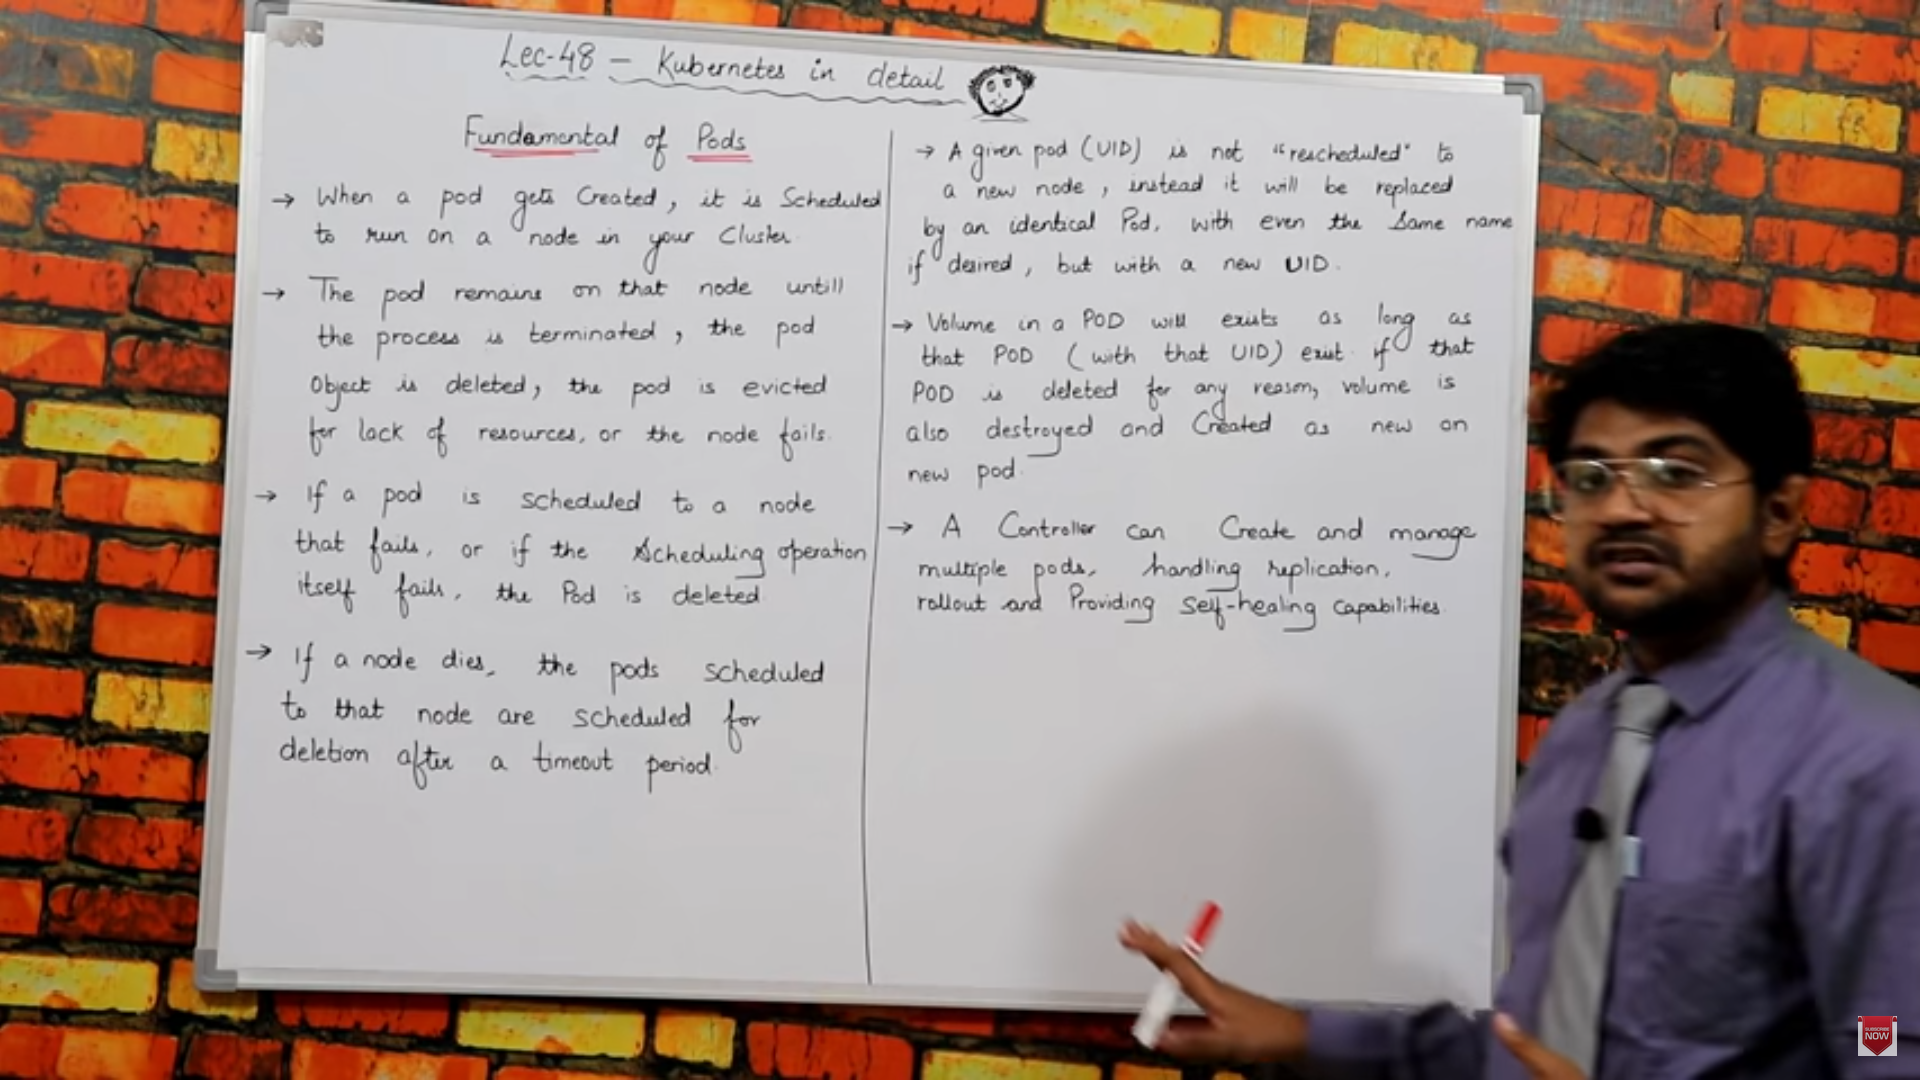 Lec-48 – Kubernetes in detail
Fundamental of Pods
→ When a pod gets Created, it is Scheduled
to run on a node in your Cluster.
→ The pod remains on that node untill
the process is terminated, the pod
Object is deleted, the pod is evicted
for lack of resources, or the node fails.
→ If a pod is scheduled to a node
that fails, or if the Scheduling operation
itself fails, the Pod is deleted.
→ If a node dies, the pods scheduled
to that node are scheduled for
deletion after a timeout period.
→ A given pod (UID) is not "rescheduled" to
a new node, instead it will be replaced
by an identical Pod, with even the Same name
if desired, but with a new UID.
→ Volume in a POD will exists as long as
that POD (with that UID) exist. if that
POD is deleted for any reason, volume is
also destroyed and Created as new on
new pod.
→ A Controller can Create and manage
multiple pods, handling replication,
rollout and Providing Self-healing capabilities.
SUBSCRIBE
NOW